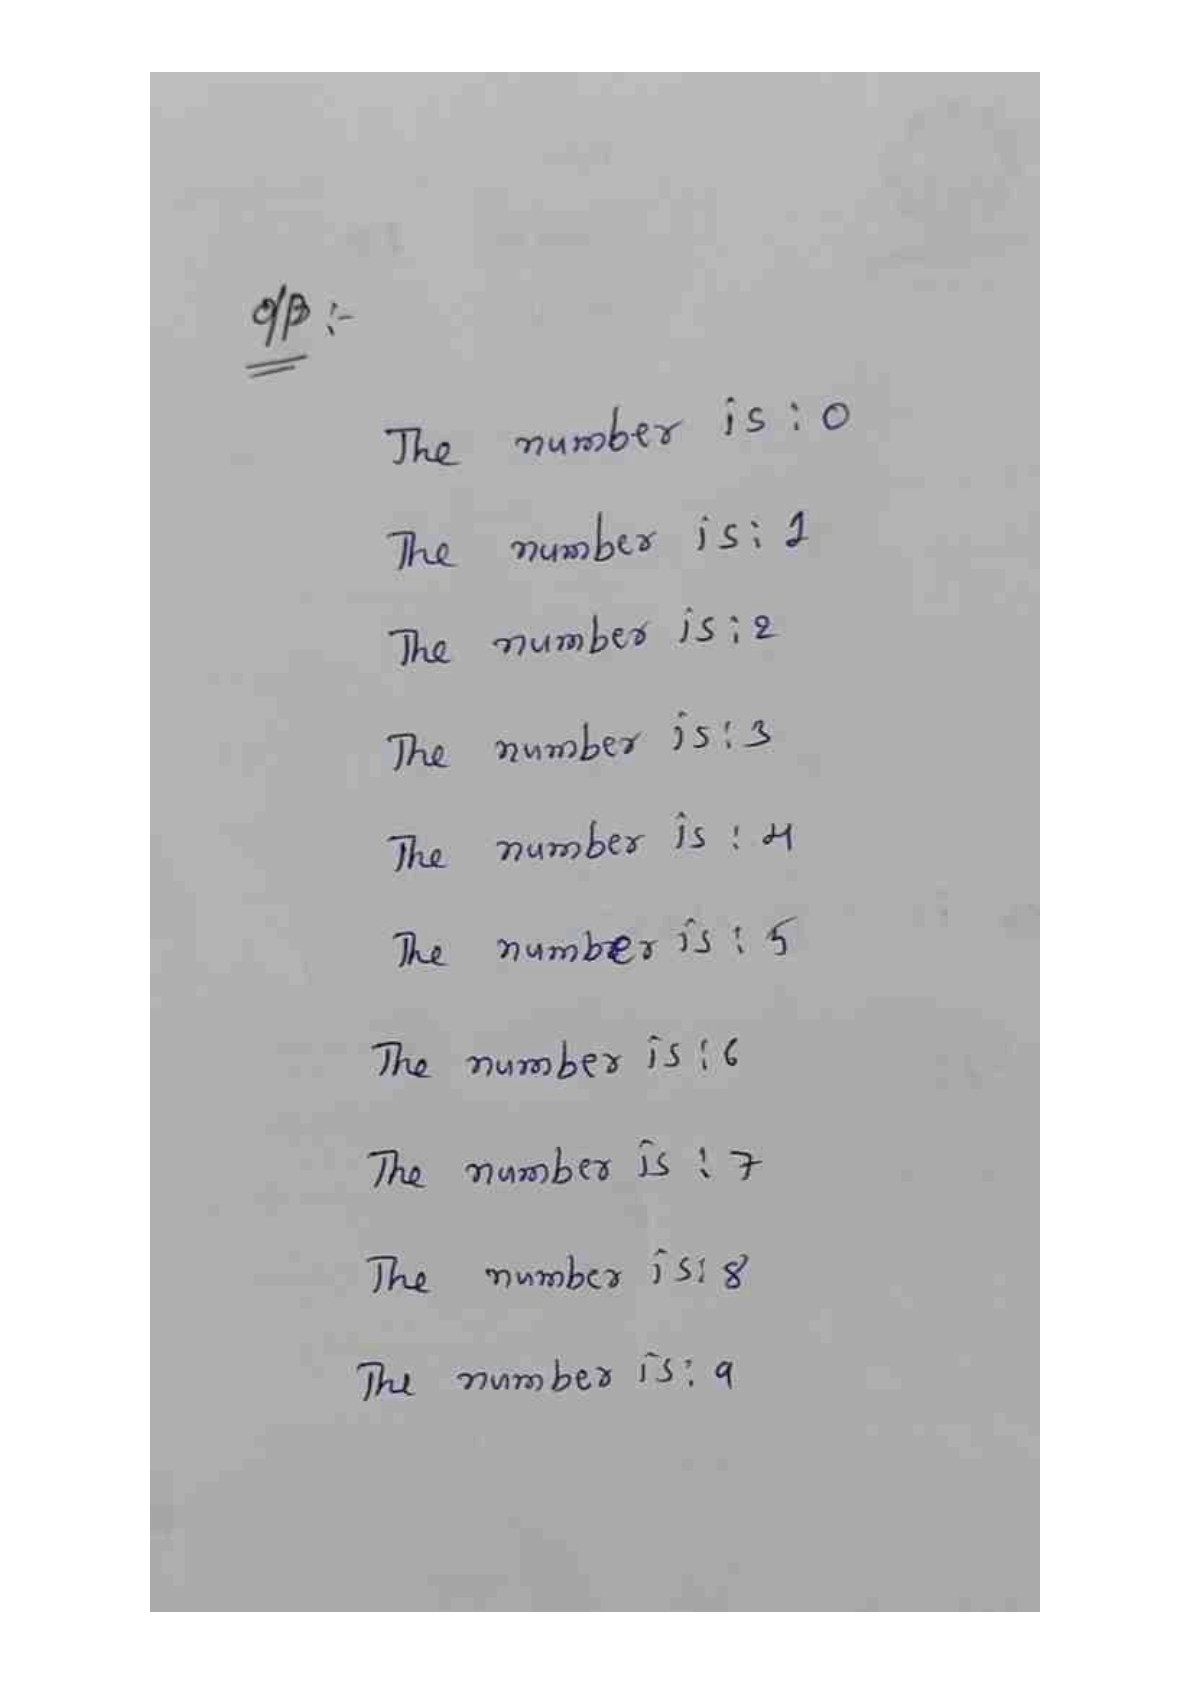 O/P :-
The number is : 0
The number is : 1
The number is : 2
The number is : 3
The number is : 4
The number is : 5
The number is : 6
The number is : 7
The number is : 8
The number is : 9